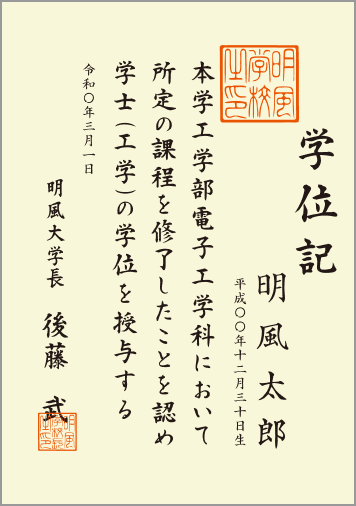 学位記
明風太郎
平成〇〇年十二月三十日生
本学工学部電子工学科において
所定の課程を修了したことを認め
学士（工学）の学位を授与する
令和〇年三月一日
明風大学長 後藤 武
明風
学校
之印
明風
学校長
之印